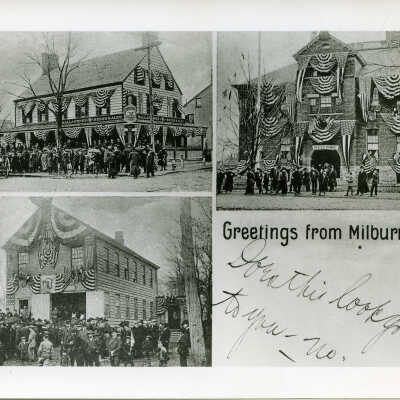 Greetings from Milburn
Dora this look good
to you — no.